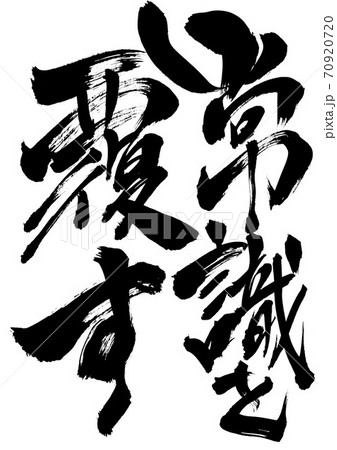 常識を
覆す
PIXTA
pixta.jp - 70920720